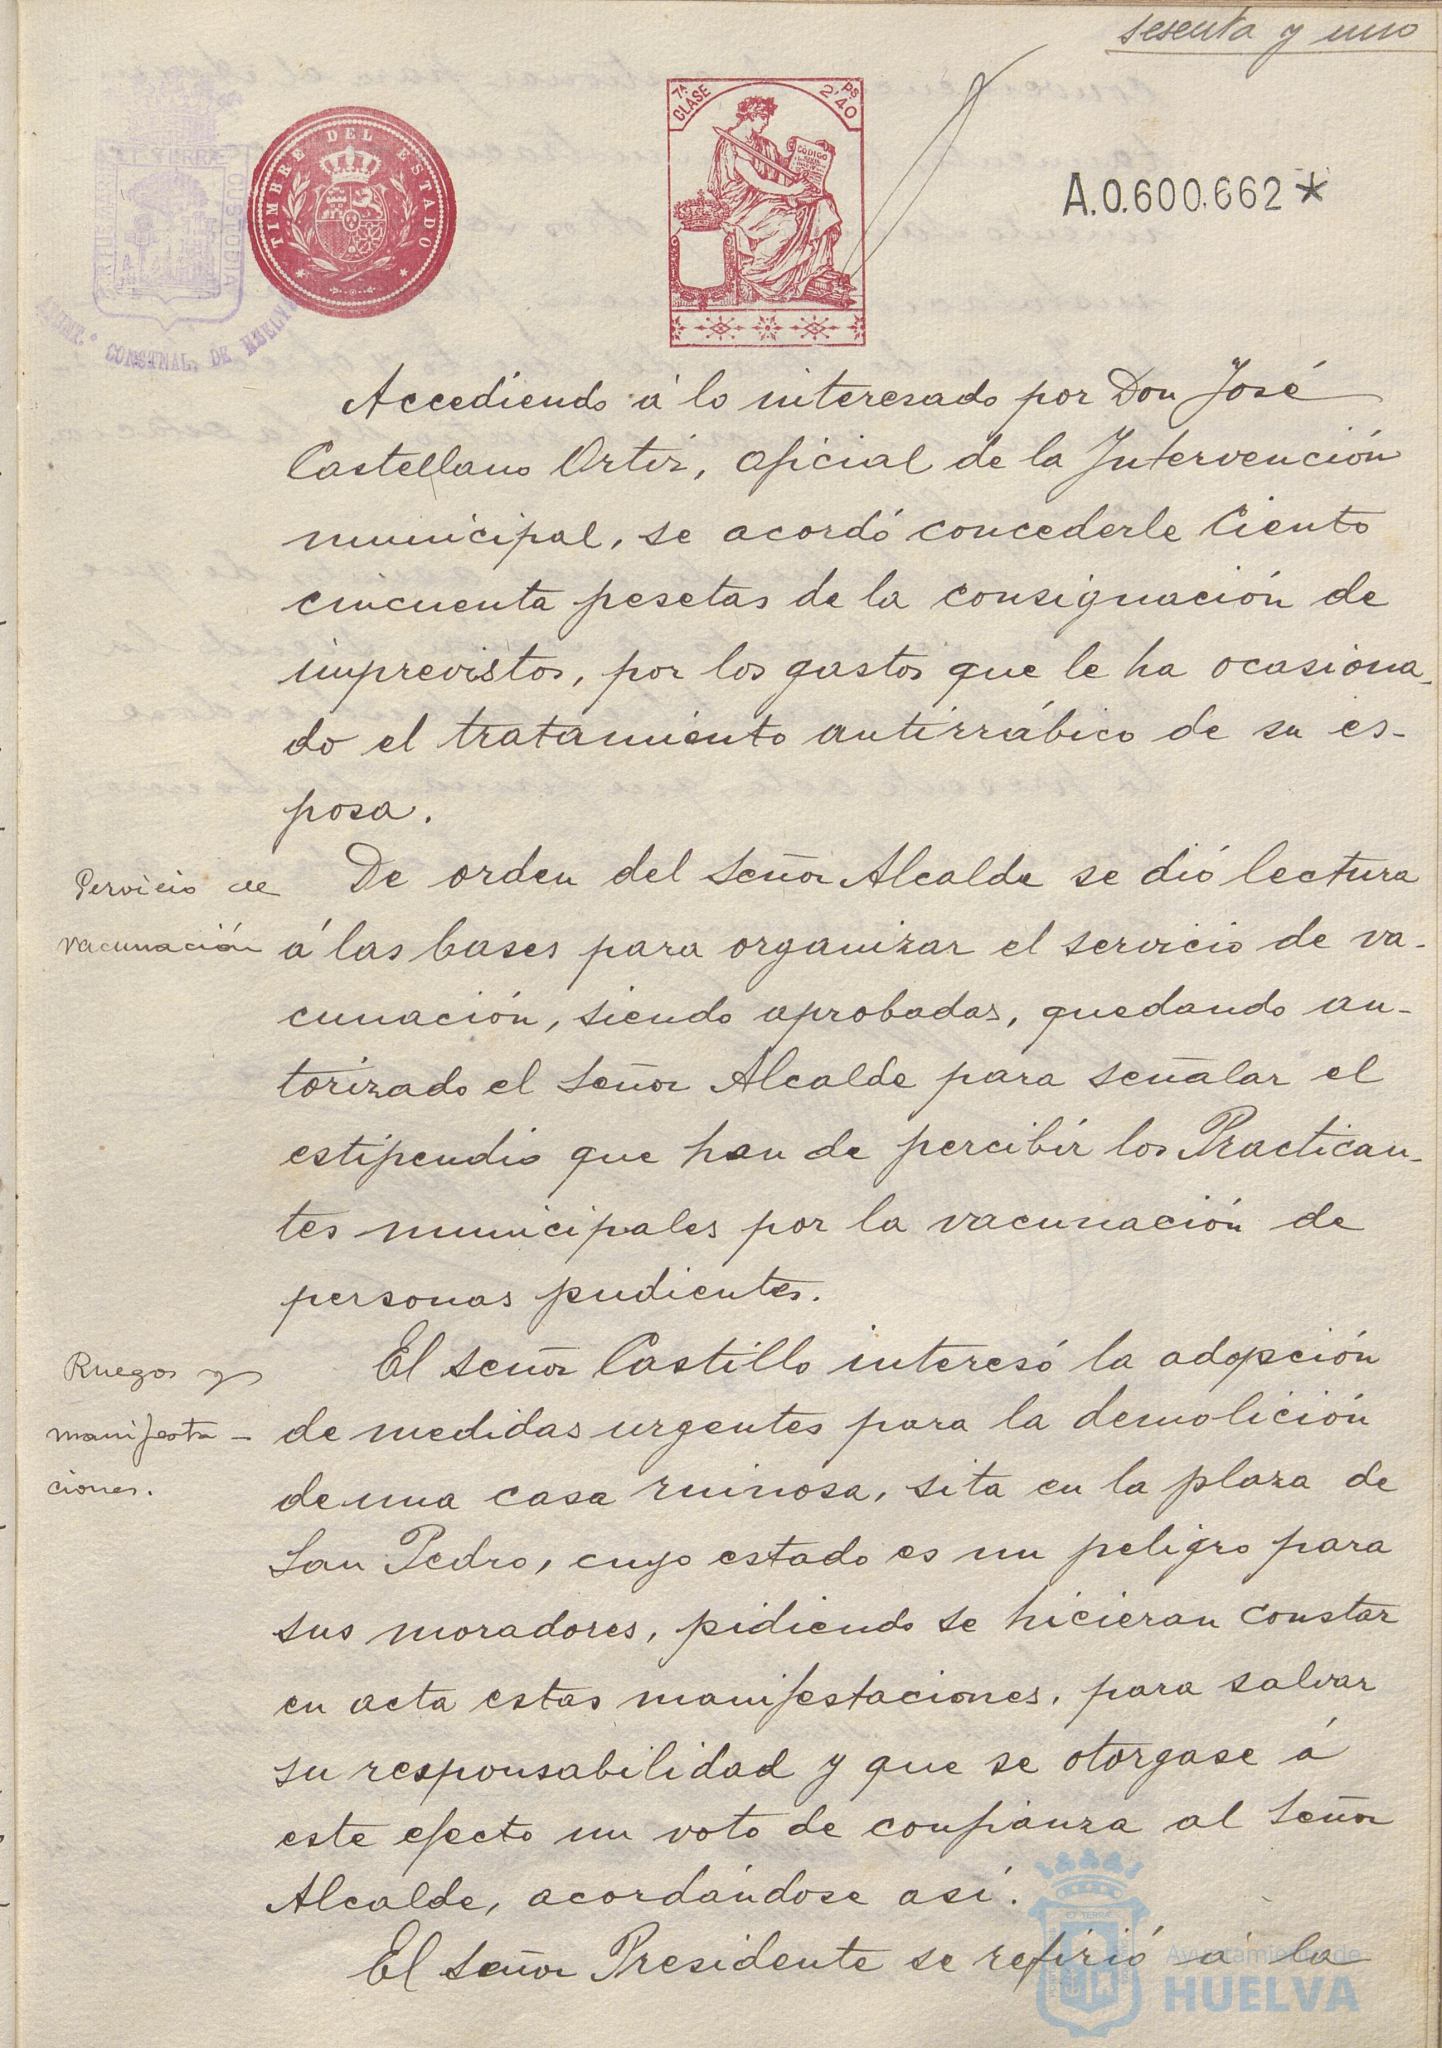 sesenta y uno
TIMBRE DEL ESTADO
7ª CLASE
2'40 Ps
CÓDIGO
A.0.600.662*
CUSTODIA
CONSTNAL. DE HUELVA
Accediendo á lo interesado por Don José
Castellano Ortiz, oficial de la Intervención
municipal, se acordó concederle Ciento
cincuenta pesetas de la consignación de
imprevistos, por los gastos que le ha ocasiona-
do el tratamiento antirrábico de su es-
posa.
Servicio de
vacunación
De orden del Señor Alcalde se dió lectura
á las bases para organizar el servicio de va-
cunación, siendo aprobadas, quedando au-
torizado el Señor Alcalde para señalar el
estipendio que han de percibir los Practican-
tes municipales por la vacunación de
personas pudientes.
Ruegos y
manifesta-
ciones.
El Señor Castillo interesó la adopción
de medidas urgentes para la demolición
de una casa ruinosa, sita en la plaza de
San Pedro, cuyo estado es un peligro para
sus moradores, pidiendo se hicieran constar
en acta estas manifestaciones, para salvar
su responsabilidad y que se otorgase á
este efecto un voto de confianza al Señor
Alcalde, acordándose así.
El Señor Presidente se refirió á la
Ayuntamiento de
HUELVA